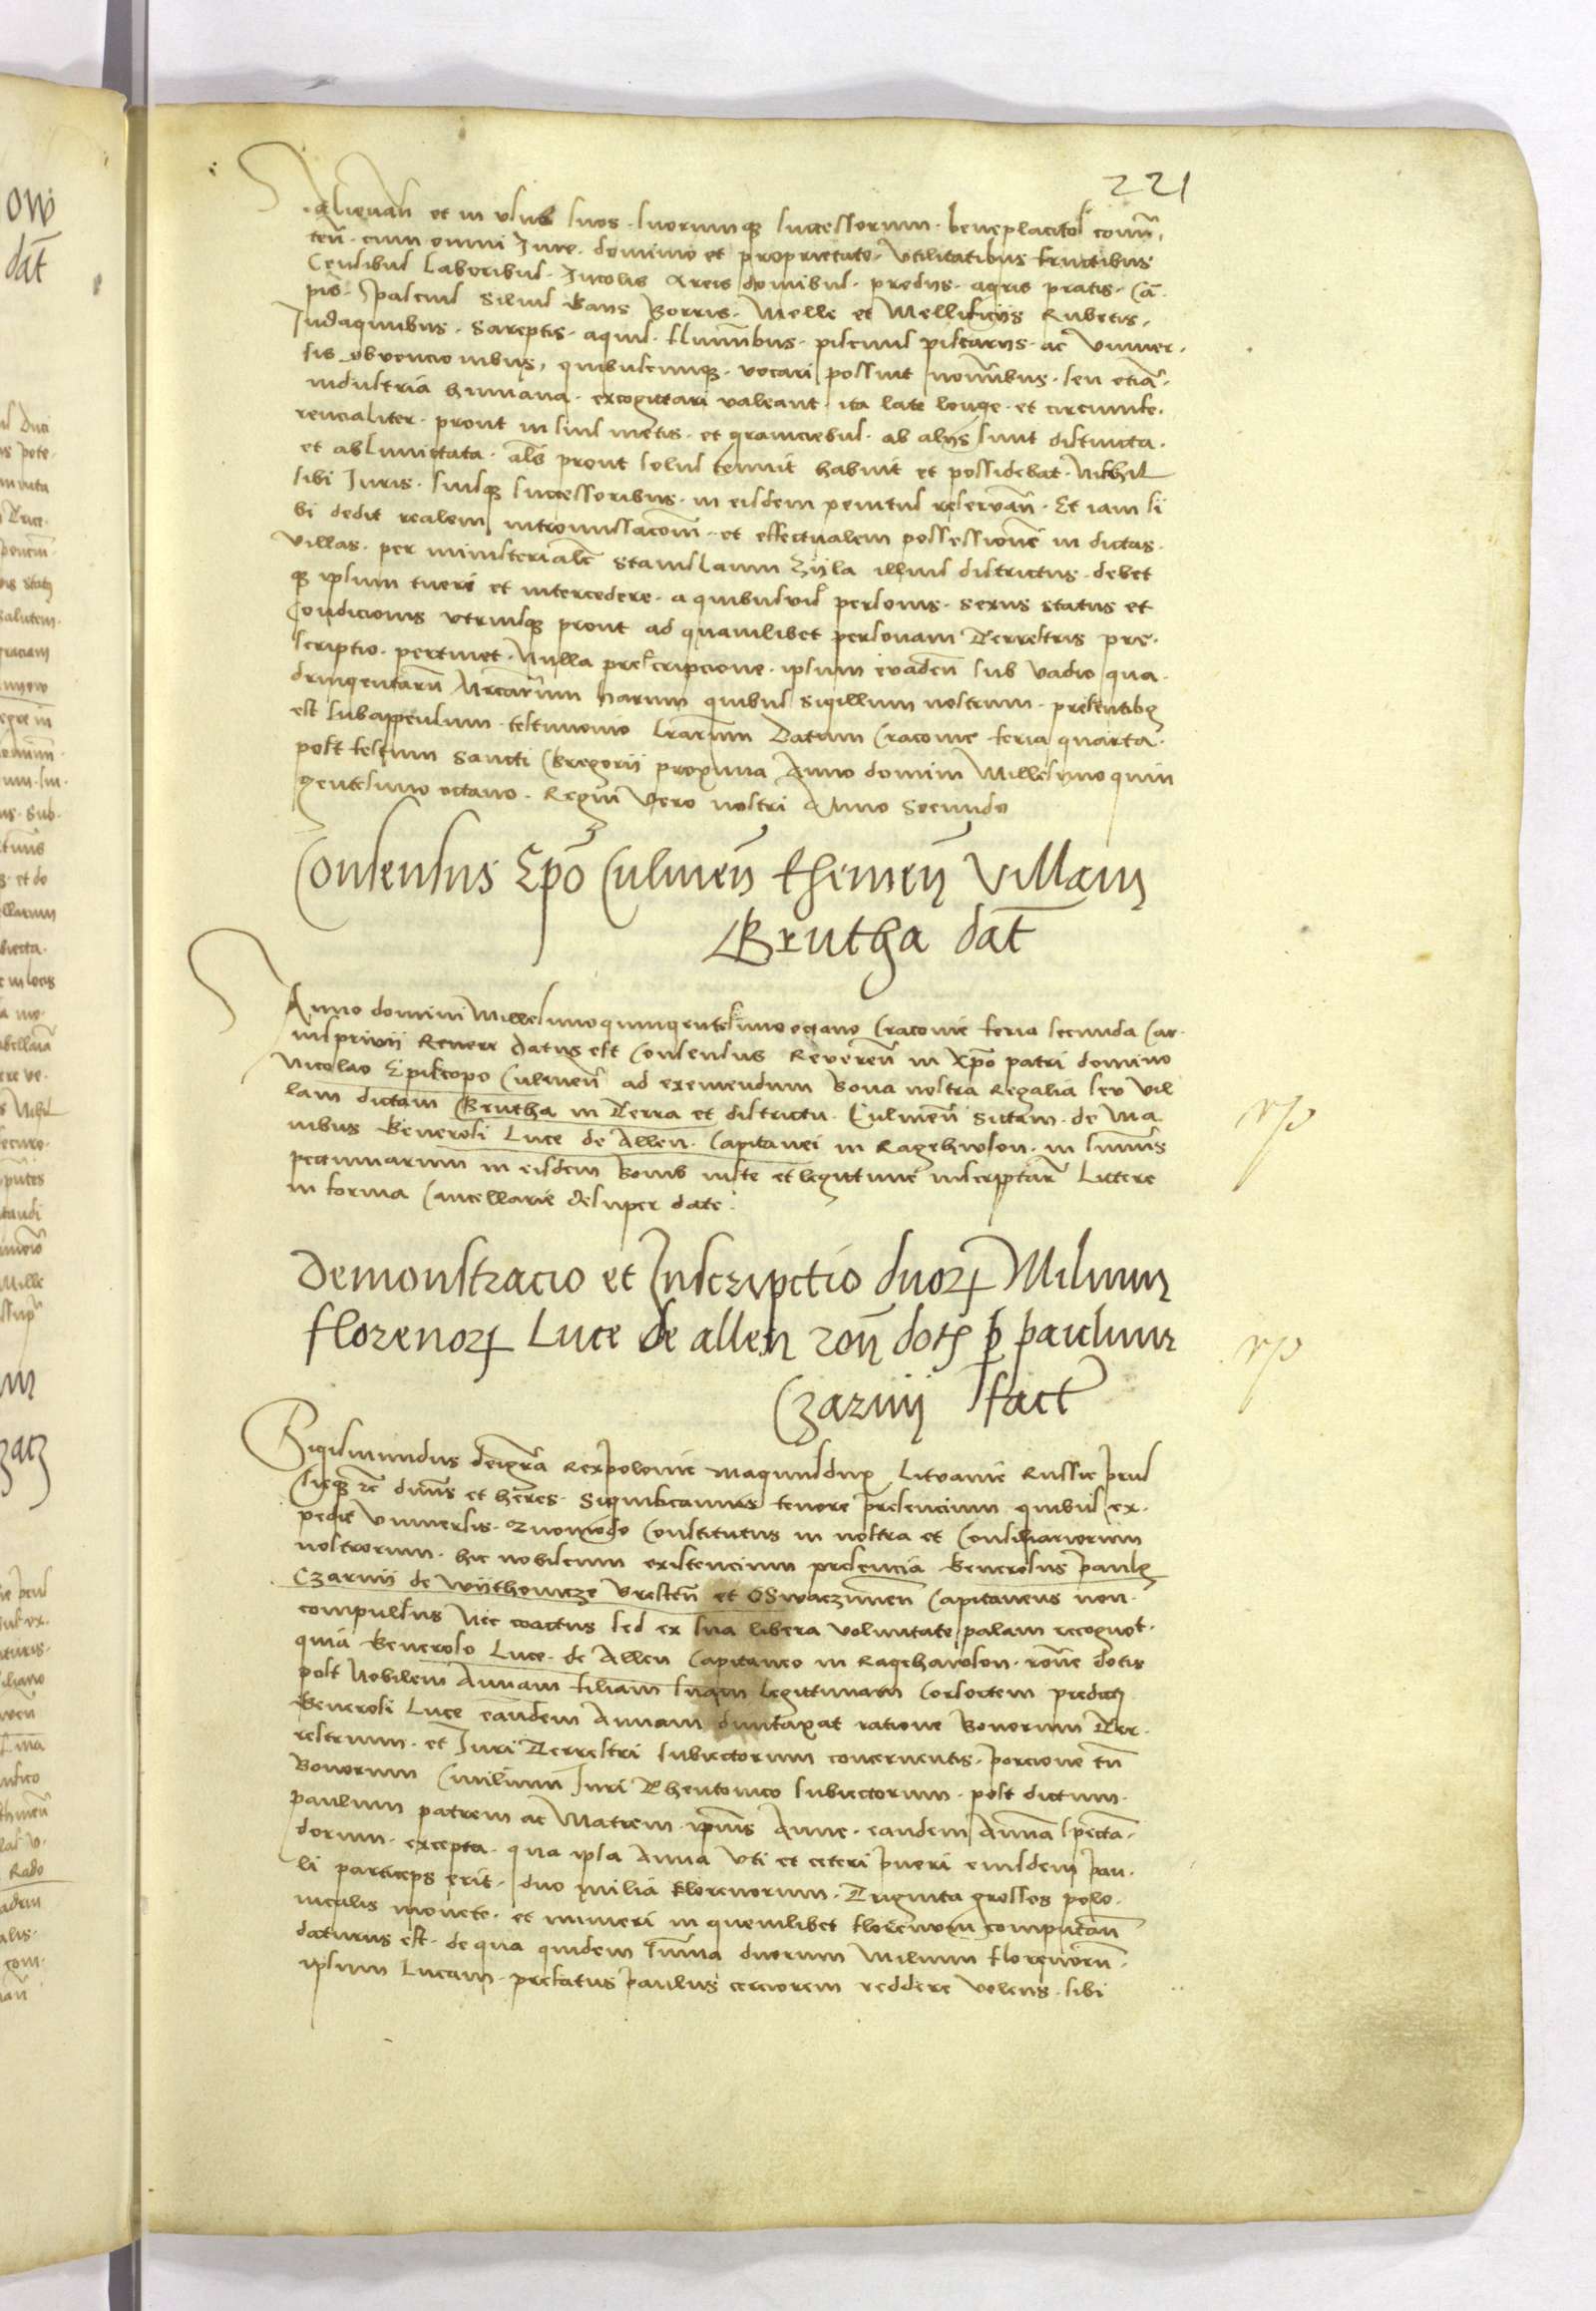 221
alienan̄ et in usus suos suorumq̨ successorum beneplacitos conu̅
ten̄ cum omni Jure dominio et proprietate Utilitatibus fructibus
Censibus Laboribus Incolis Areis domibus predijs agris pratis Ca̅
pis pascuis Siluis Gays Borris Melle et Mellificijs Rubetis
Indaginibus Sareptis aquis flumi̅bus piscinis piscarijs ac Vniuer
sis obuencionibus, quibuscumq̨ vocari possint nom̅ibus seu etia̅
industria humana excogittari valeant ita late longe et circumfe
rencialiter prout in suis metis et graniciebus ab alijs sunt distincta
et ablimittata al̅s prout solus tenuit habuit et possidebat Nichil
sibi Juris suisq̨ successoribus in eisdem penitus reseruan̄ Et iam si
bi dedit realem intromissacom̅ et effectualem possessione̅ in dictas
villas per ministeriale̅ Stanislaum Zyla illius districtus debet
q̨ ipsum tueri et intercedere a quibusuis personis Sexus status et
Condicionis vtriusq̨ prout ad quamlibet personam Terrestris pre
scriptio pertinet Nulla prescripcione ipsum euaden̄ sub vadio qua
dringentaru̅ Mrcaru̅m harum quibus Sigillum nostrum presentibq
est subappensum testimonio lr̅arum Datum Cracouie feria quarta
post festum Sancti Gregorii proxima Anno domini Millesimo quin
gentesimo octauo Regni̅ Vero nostri Anno Secundo
Consensus Ep̅o Culmen̄ eximen̄ Villam
Grutha dat̅
Anno domini Millesimoquingentesimo octauo Cracouie feria secunda Car
nispriuij Reuere datus est Consensus Reueren̄ in Xp̅o patri domino
Nicolao Episcopo Culmen̄ ad exemendum Bona nostra Regalia seu Vil
lam dictam Grutha in Terra et districtu Culmen̄ Sitam de Ma
nibus Generosi Luce de Allen Capitanei in Ragehwson in sum̅is
pecuniarum in eisdem Bonis iuste et legittime inscriptar̅ Littere
in forma Cancellarie desuper date
Demonstracio et Inscripctio duoꝝ Milium
florenoꝝ Luce de allen ron̄ dotis ꝑ paulum
Czarnij fact̅
Sigismundus deigr̅a Rexpolonie magnusdux Lituanie Russie prus
sieq̨ zc̅ dn̅us et heres Significamus tenore presencium quibus ex
pedit Vniuersis Quomodo Constitutus in nostra et Consiliariorum
nostrorum hic nobiscum existencium presencia Generosus paulꝯ
Czarnij de Wijthowicze Vresten̄ et Oswaczimen̄ Capitaneus non
compulsus Nec coactus sed ex sua libera voluntate palam recognot
quia Generoso Luce de Allen Capitaneo in Ragehawson ron̄e dotis
post Nobilem Annam filiam suam legittimam Consortem predictj
Generosi Luce eandem Annam duntaxat ratione Bonorum Ter
restrium et Juri Terrestri subiectorum concernentis porcione tn̄
Bonorum Ciuilium Juri Theutonico subiectorum post dictum
paulum patrem ac Matrem ipi̅us Anne eandem Anna̅ specta̅
dorum excepta qua ipsa Anna Vti et ceteri pueri eiusdem pau
li particeps erit duo milia florenorum Triginta grossos polo
nicalis monete et numeri in quemlibet florenum computan̄
daturus est de qua quidem Sum̅a duorum Milium florenoru̅
ipsum Lucam prefatus paulus cerciorem reddere volens sibi